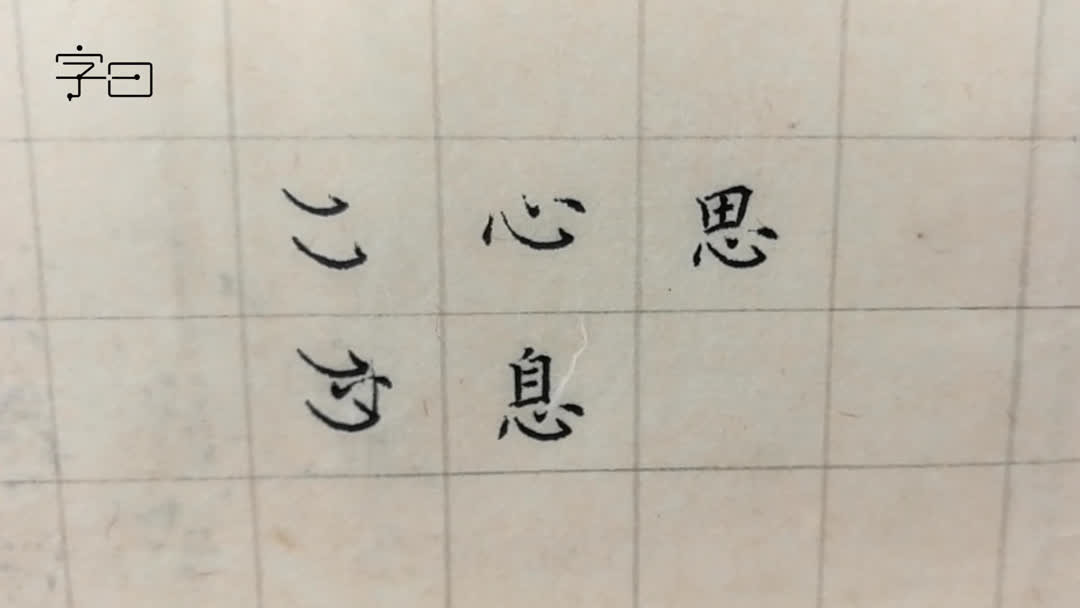 字曰
心 思
息